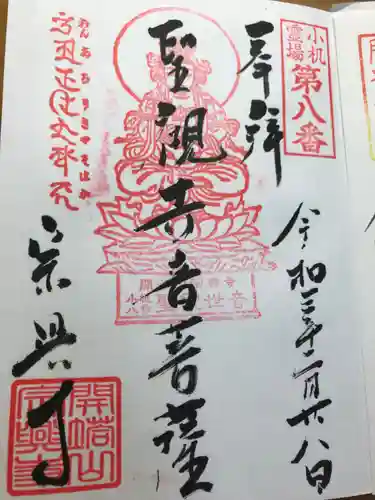 小机
霊場
第八番
奉拝
令和三年二月廿八日
聖観世音菩薩
おんあろりきやそはか
宗興寺
開塔山
宗興寺